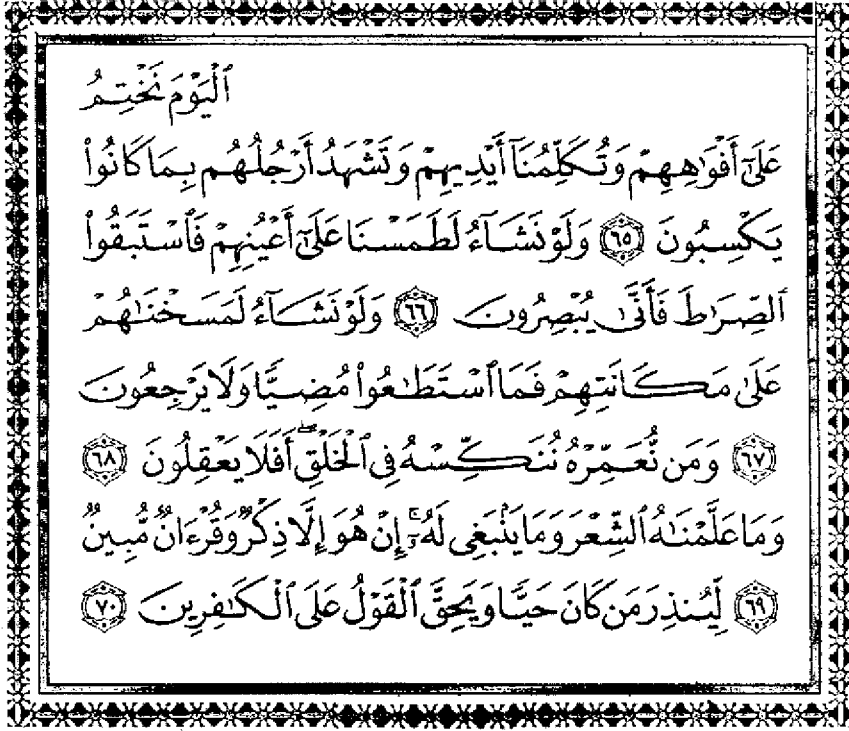 ٱلْيَوْمَ نَخْتِمُ
عَلَىٰٓ أَفْوَٰهِهِمْ وَتُكَلِّمُنَآ أَيْدِيهِمْ وَتَشْهَدُ أَرْجُلُهُم بِمَا كَانُوا۟
يَكْسِبُونَ ٦٥ وَلَوْ نَشَآءُ لَطَمَسْنَا عَلَىٰٓ أَعْيُنِهِمْ فَٱسْتَبَقُوا۟
ٱلصِّرَٰطَ فَأَنَّىٰ يُبْصِرُونَ ٦٦ وَلَوْ نَشَآءُ لَمَسَخْنَٰهُمْ
عَلَىٰ مَكَانَتِهِمْ فَمَا ٱسْتَطَٰعُوا۟ مُضِيًّا وَلَا يَرْجِعُونَ
٦٧ وَمَن نُّعَمِّرْهُ نُنَكِّسْهُ فِى ٱلْخَلْقِ ۖ أَفَلَا يَعْقِلُونَ ٦٨
وَمَا عَلَّمْنَٰهُ ٱلشِّعْرَ وَمَا يَنۢبَغِى لَهُۥٓ ۚ إِنْ هُوَ إِلَّا ذِكْرٌ وَقُرْءَانٌ مُّبِينٌ
٦٩ لِّيُنذِرَ مَن كَانَ حَيًّا وَيَحِقَّ ٱلْقَوْلُ عَلَى ٱلْكَٰفِرِينَ ٧٠